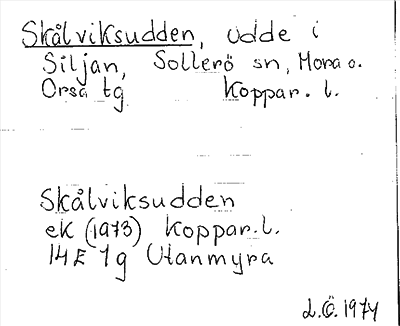 Skålviksudden, udde i
Siljan, Sollerö sn, Mora o.
Orsa tg Koppar. l.
Skålviksudden
ek (1973) Koppar. l.
14E 1g Utanmyra
L.Ö. 1974